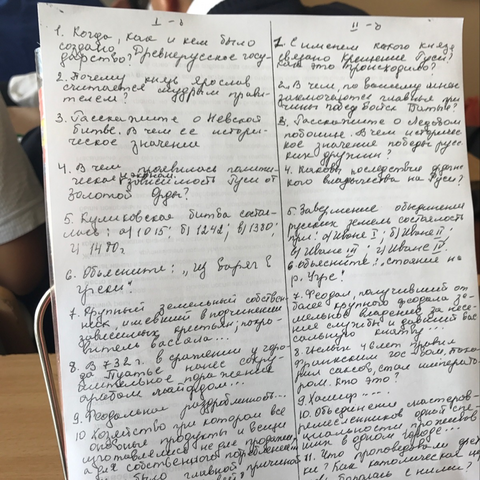 I - в
1. Когда, как и кем было
создано
Древнерусское госу-
дарство?
2. Почему князь Ярослав
считается мудрым прави-
телем?
3. Расскажите о Невской
битве. В чем ее истори-
ческое значение
4. В чем проявилась полити-
ческая зависимость Руси от
Золотой Орды?
5. Куликовская битва состоя-
лась: а) 1015; б) 1242; в) 1380;
г) 1480г
6. Объясните: „Из варяг в
греки"
7. Крупный земельный собствен-
ник, имевший в подчинении
зависимых крестьян, покро-
витель вассала...
8. В 732 г. в сражении у горо-
да Пуатье нанес сокру-
шительное поражение
арабам майордом...
9. Феодальная раздробленность...
10. Хозяйство при котором все
основные продукты и вещи
изготавливались не для продажи
а для собственного потребления
было главной причиной
II - в
1. С именем какого князя
связано крещение Руси?
Как это происходило?
2. В чем, по вашему мнению
заключаются главные при-
чины
3. Расскажите о Ледовом
побоище. В чем историчес-
кое значение победы рус-
ских дружин?
4. Каковы последствия ордын-
ского владычества на Руси?
5. Завершение объединения
русских земель состоялось
при: а) Иване I; б) Иване II;
в) Иване III; г) Иване IV,
6. объясните: „стояние на
р. Угре!
7. Феодал, получивший от
более крупного феодала зе-
мельное владение за несе-
ние службы и давший вас-
сальную клятву...
8. лет правил
франкским гос-вом, поко-
рил саксов, стал императо-
ром. Кто это?
9. Халиф ....
10. Объединения мастеров-
ремесленников одной спе-
циальности проживав-
ших в одном городе...
11. Что проповедовали
ки? Как католическая ц
боролась с ними?